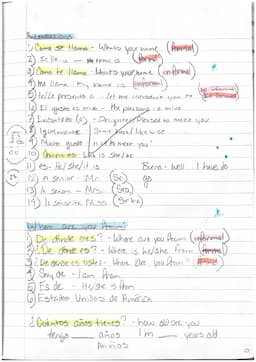 1) Como se llama - Whats your name (formal)
2) Se lla - name is
3) Como te llama - Whats your name (informal)
4) Me llama - my name is (informal)
5) te/le presento a - let me introduce you to
6) El gusto es mío - The pleasure is mine
7) Encantado (a) - Delighted/Pleased to meet you
8) Igualmente - Same here/likewise
9) Mucho gusto - nice to meet you
10) Quien es - who is she/he
11) es - He/she/it is
Bien - Well I have to
12) El señor - Mr. (Sr) go
13) la señora - Mrs. (Sra)
14) la señorita Miss (Srta)
Where are you from
1) De dónde eres? - Where are you from (informal)
2) ¿De dónde es? - Where is he/she from (formal)
3) De dónde es usted - Where are you from?
4) Soy de - I am from
5) Es de - He/she is from
6) Estados Unidos de América
¿Cuántos años tienes? - how old are you
tengo ___ años I'm ___ years old